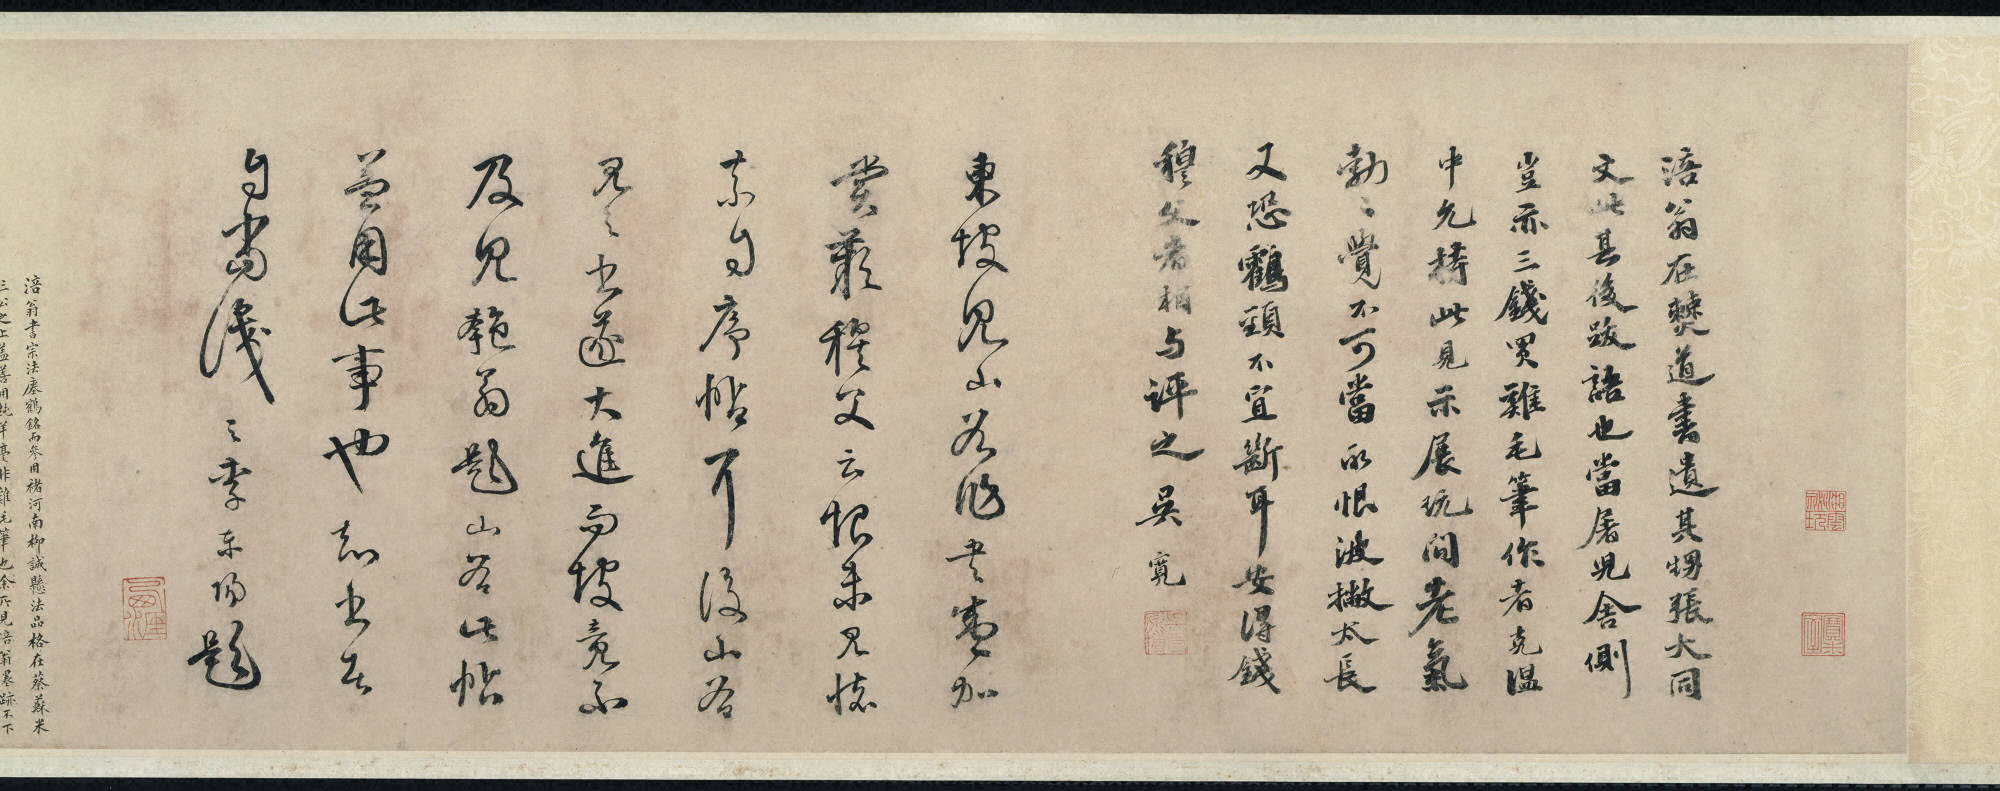 涪翁在僰道書遺其甥張大同
文此其後跋語也當屠兒舍側
豈亦三錢買雞毛筆作者克溫
中允持此見示展玩間老氣
勃々覺不可當所恨波撇太長
又恐鶴頸不宜斷耳安得錢
穆父者相与評之吳寬
東坡見山谷作草書亟加
賞歎穆父云恨未見懷
素自序帖耳後山谷
見之書遂大進而坡竟不
及見匏翁題山谷此帖
蓋用此事也知書者
自當識之李東陽題
涪翁書宗法瘞鶴銘而參用褚河南柳誠懸法品格在蔡蘇米
三公之上蓋善用純羊毫非雞毛筆也余所見涪翁墨跡不下